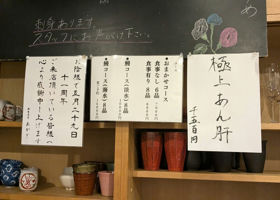 め
刺身あります。
スタッフにお声がけ下さい。
極上あん肝
千五百円
◆おまかせコース
食事なし 6品
食事有り 8品
コース(淡水)
8品
コース(海水)
8品
お陰様で五月二十九日
十一周年
ご来店頂いている皆様へ
心より感謝申し上げます